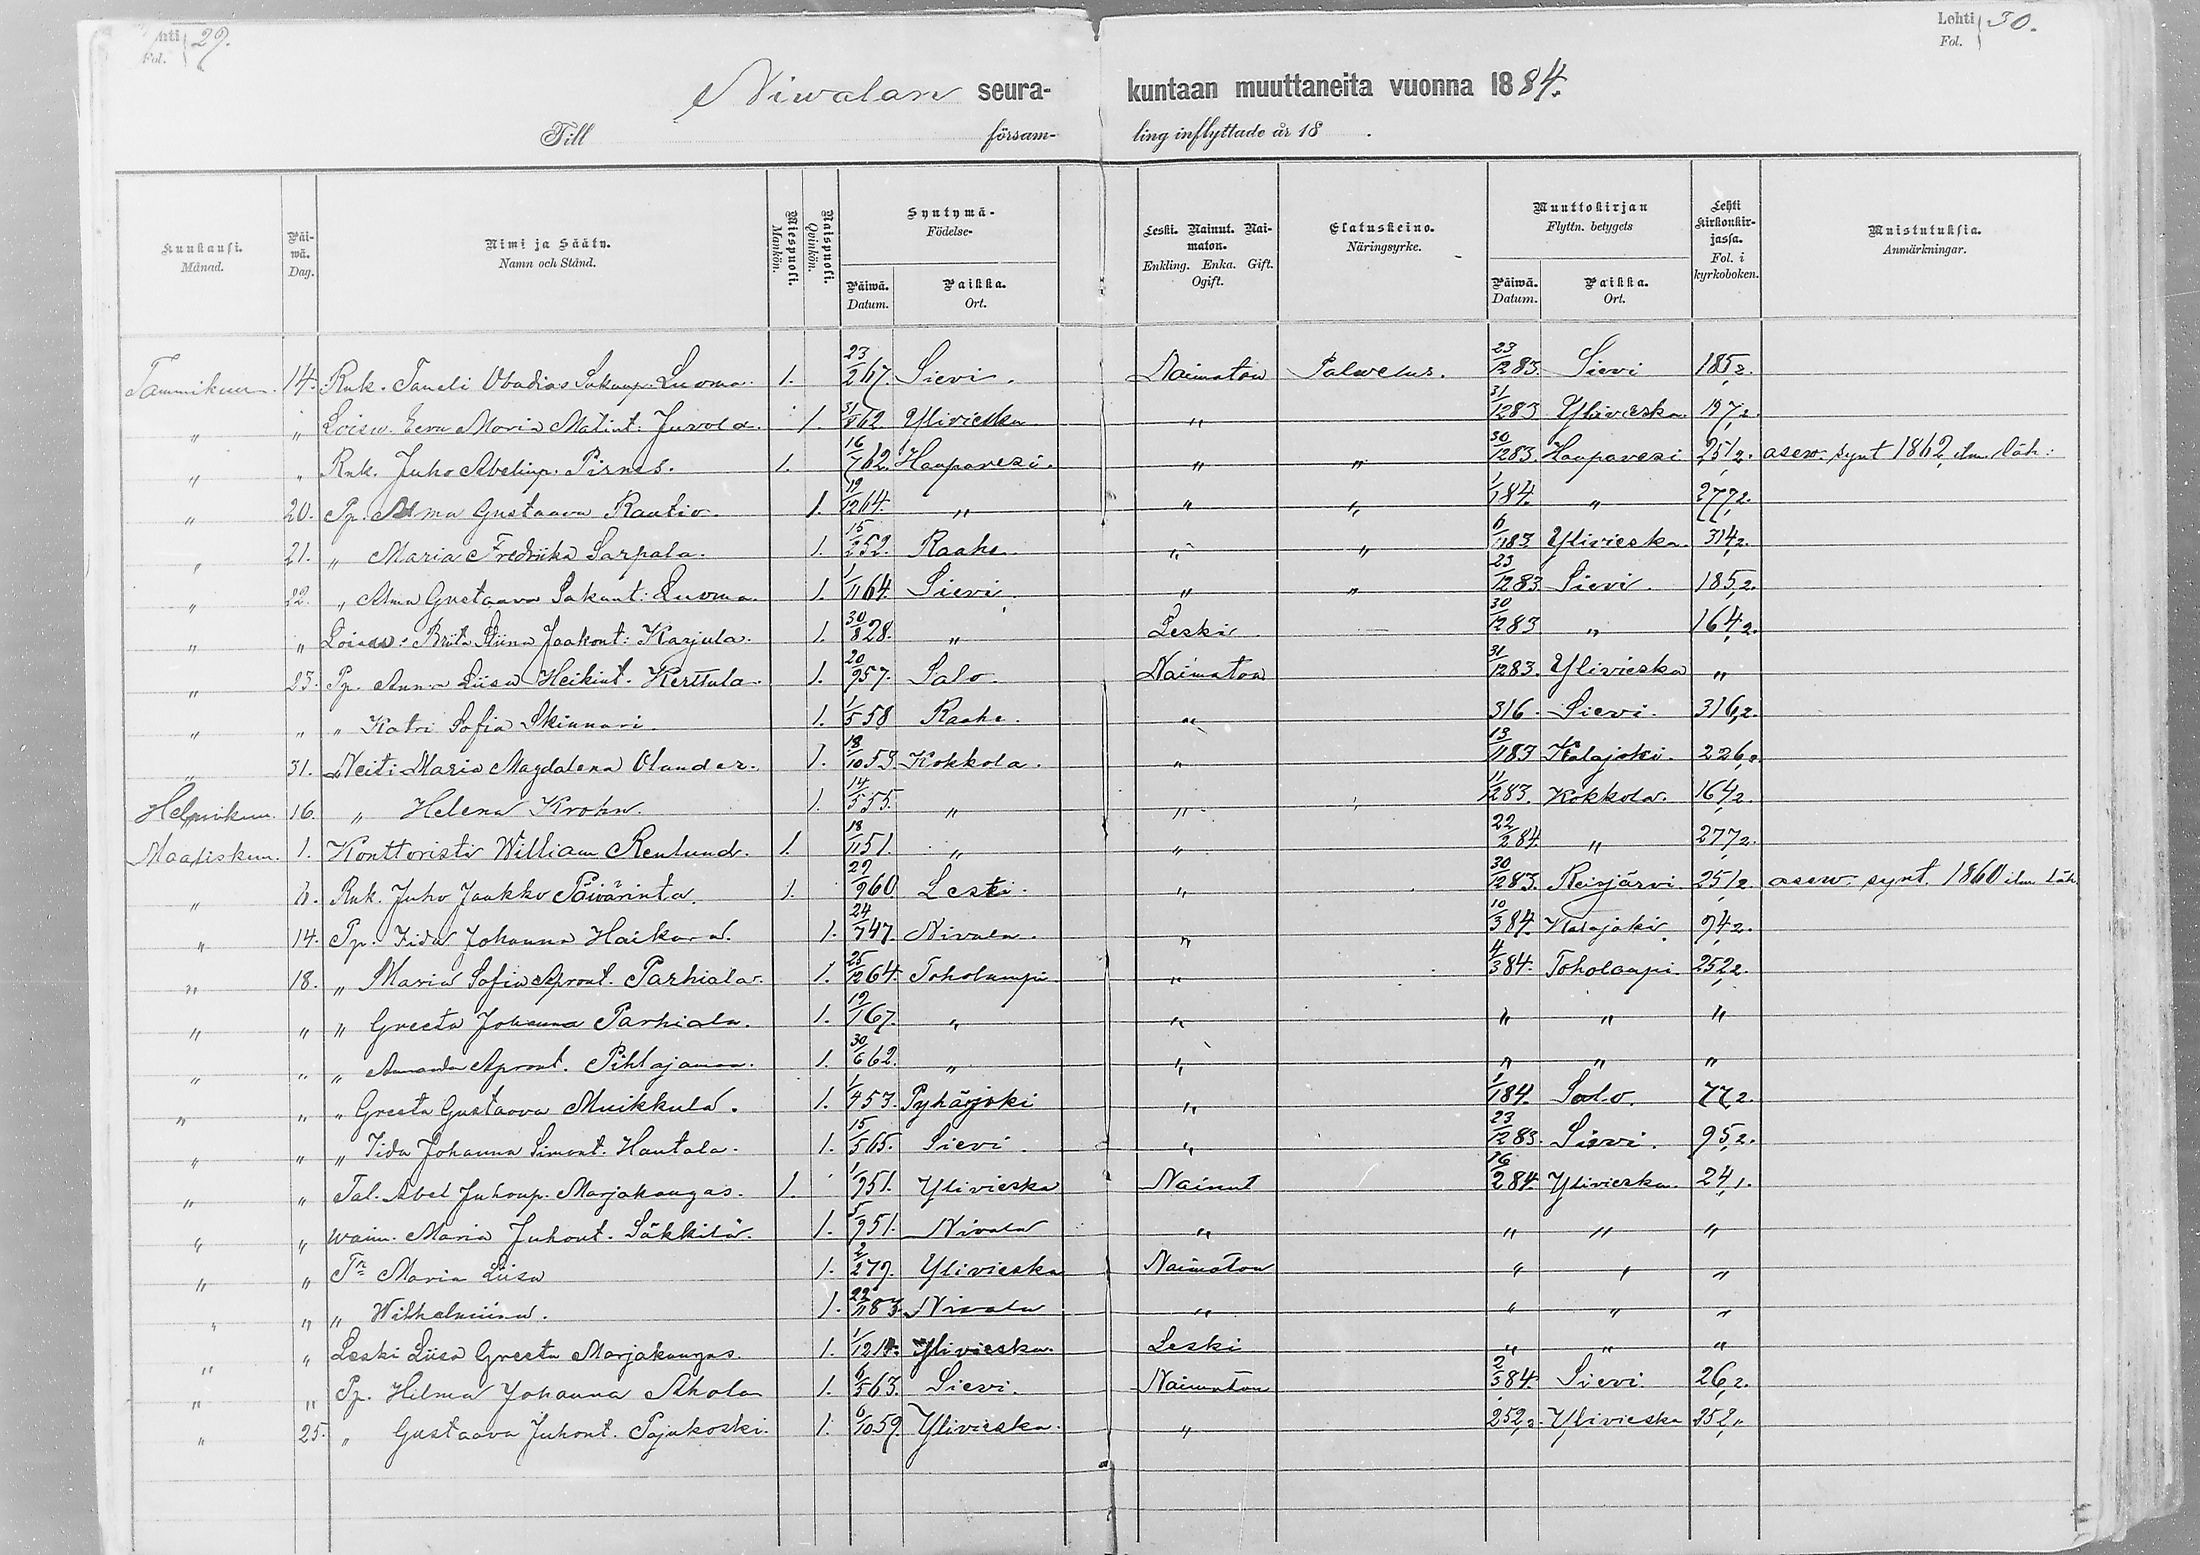 Lehti 29. Lehti 30.
Fol. Fol.
Niwalan seura- kuntaan muuttaneita vuonna 1884.
Till försam- ling inflyttade år 18 .
Kuukausi. Månad. Päiwä. Dag. Nimi ja Sääty. Namn och Stånd. Miespuoli. Mankön. Naispuoli. Qvinkön. Syntymä- Födelse- Päiwä. Datum. Paikka. Ort. Leski. Nainut. Naimaton. Enkling. Enka. Gift. Ogift. Elatuskeino. Näringsyrke. Muuttokirjan Flyttn. betygets Päiwä. Datum. Paikka. Ort. Lehti kirkonkirjassa. Fol. i kyrkoboken. Muistutuksia. Anmärkningar.
Tammikuu. 14. Rnk. Taneli Obadias Sakunp. Luoma. 1. 23/2 67. Sievi. Naimaton Palvelus. 23/12 83. Sievi 185,2.
" " Loisw. Eeva Maria Matint. Juvola. 1. 31/8 62 Ylivieska " 31/12 83 Ylivieska 197,2.
" " Rnk. Juho Abelinp. Pirnes. 1. 16/7 62. Haapavesi. " " 30/12 83. Haapavesi 251,2. asew. synt 1862, ilm. läh:
" 20. Pp. Alma Gustaava Raatio. 1. 19/12 64. " " " 1/1 84. " 277,2.
" 21. " Maria Fredriika Sarpala. 1. 15/2 52. Raahe " " 6/11 83 Ylivieska. 314,2.
" 22. " Alma Gustaava Sakunt: Luoma. 1. 1/11 64. Sievi. " " 23/12 83 Sievi. 185,2.
" " Loisw: Brita Stiina Jaakont: Karjula. 1. 30/8 28. " Leski 30/12 83 " 164,2.
" 23. Pp. Anna Liisa Heikint. Kerttula. 1. 20/9 57. Salo. Naimaton 31/12 83. Ylivieska "
" " " Katri Sofia Skinnari. 1. 1/5 58 Raahe. " 316. Sievi. 316,2.
" 31. Neiti Maria Magdalena Olander. 1. 18/10 53. Kokkola. " 13/11 83 Kalajoki. 226,2
Helmikuu. 16. " Helena Krohn. 1. 14/5 55. " " 11/12 83. Kokkola. 164,2.
Maaliskuu. 1. Konttoristi William Renlund. 1. 18/11 51. " " 22/2 84. " 277,2.
" 8. Rnk. Juho Jaakko Päivärinta. 1. 29/9 60. Lesti. " 30/12 83. Reisjärvi 251,2 asew. synt. 1860 ilm. läh.
" 14. Pp. Iida Johanna Haikara. 1. 24/7 47. Nivala. " 10/3 84. Kalajoki 94,2.
" 18. " Maria Sofia Apront. Parhiala. 1. 25/12 64. Toholampi " 4/3 84. Toholampi 252,2.
" " " Greeta Johanna Parhiala. 1. 19/1 67. " " " " "
" " " Amanda Apront. Pihlajamaa. 1. 30/6 62. " " " " "
" " " Greeta Gustaava Muikkula. 1. 1/4 53. Pyhäjoki " 1/1 84. Salo. 77,2.
" " " Iida Johanna Simont. Hautala. 1. 15/5 65. Sievi. " 23/12 83. Sievi. 95,2.
" " Tal. Abel Juhonp. Marjakangas. 1. 1/9 51. Ylivieska Nainut 16/2 84. Ylivieska. 24,1.
" " waim. Maria Juhont. Säkkilä. 1. 5/9 51. Nivala " " " "
" " Tr. Maria Liisa 1. 2/2 79. Ylivieska Naimaton " " "
" " " Wilhelmiina. 1. 22/11 83. Nivala " " " "
" " Leski Liisa Greeta Marjakangas. 1. Ylivieska. Leski " " "
" " Pp. Hilma Johanna Ahola 1. 6/5 63. Sievi. Naimaton 2/3 84. Sievi. 26,2.
" 25. " Gustaava Juhont. Pajukoski. 1. 6/10 59. Ylivieska. " 252,2. Ylivieska 252,"